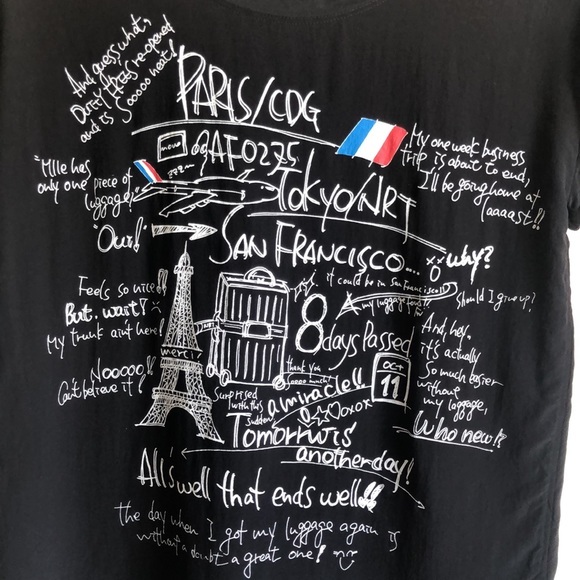 And guess what,
Duty Frees re-opened
and is Sooooo neat!
PARIS/CDG
AF0275
My one week business
trip is about to end,
I'll be going home at
laaaast!!
"Mlle has
only one piece of
luggage?"
TOKYO/NRT
"Oui!"
SAN FRANCISCO...
why?
it could be in San Francisco!!
my luggage
Should I give up?
Feels so nice!
But.. wait!
My trunk aint here!
8
days Passed
And, hey,
it's actually
so much easier
without
my luggage,
Who new!?
merci
Nooooo!!
Can't believe it!
thank you
soooo much!
OCT
11
Surprised
with this
sudden
a miracle!!
xoxox
Tomorrwis
another day!
All's well that ends well!!
the day when I got my luggage again is
without a doubt a great one!